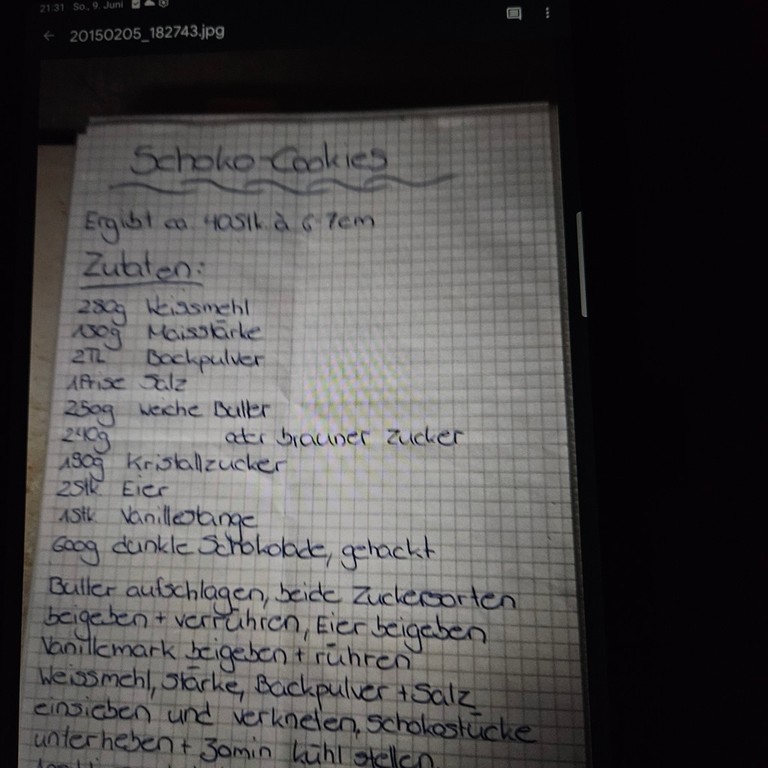 21:31 So., 9. Juni
20150205_182743.jpg
Schoko-Cookies
Ergibt ca. 40Stk à 6-7cm
Zutaten:
280g Weissmehl
Maisstärke
2TL Backpulver
1 Prise Salz
250g weiche Butter
240g oder brauner Zucker
Kristallzucker
2Stk. Eier
1Stk Vanillestange
600g dunkle Schokolade, gehackt
Butter aufschlagen, beide Zuckersorten
beigeben + verrühren, Eier beigeben
Vanillemark beigeben + rühren
Weissmehl, Stärke, Backpulver + Salz
einsieben und verkneten, Schokostücke
unterheben + 30min kühl stellen